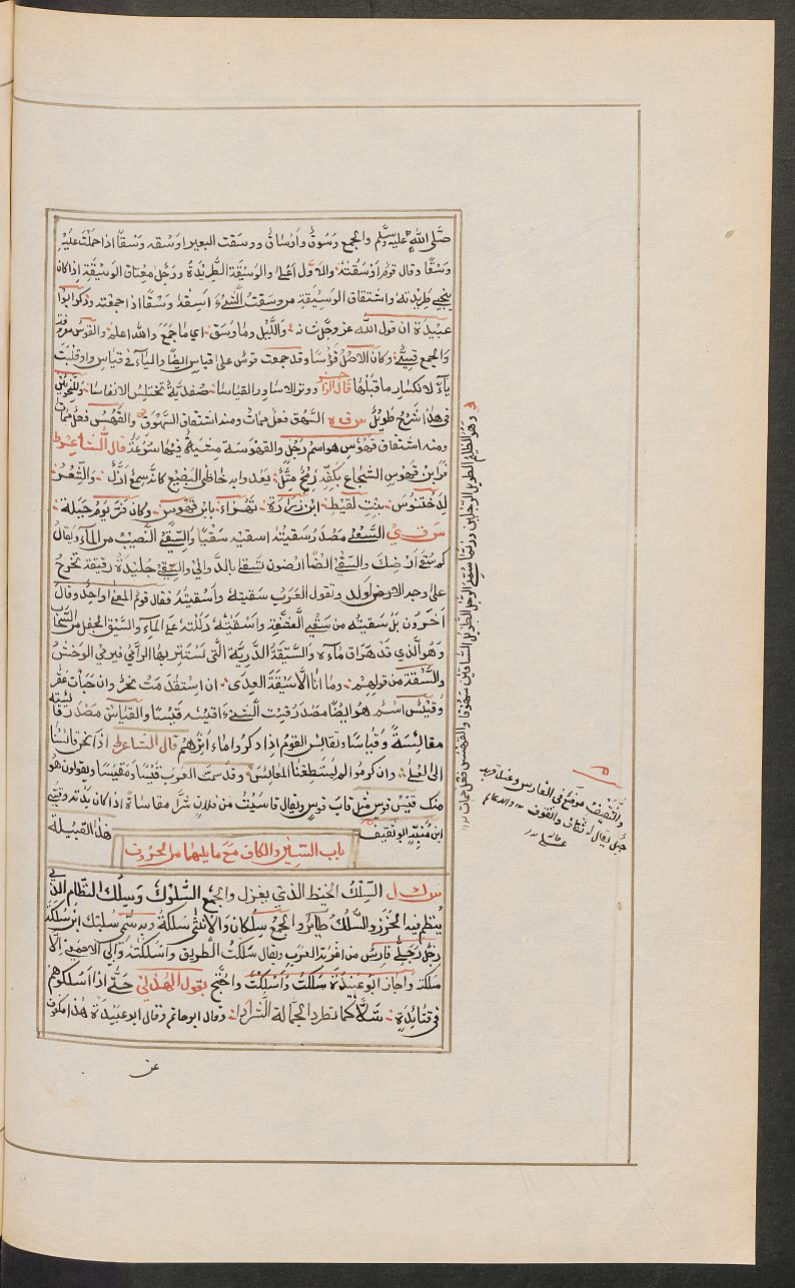 صلى الله عليه وسلم والجمع وسوق وأوساق ووسقت البعير اوسقه وسقا اذا حملت عليه
وسقا وقال قوم أوسقته والاول أعلى والوسيقة الطريدة ورجل معتاق الوسيقة اذا كان
ينجي طريدته واشتقاق الوسيقة من وسقت الشيء اسقه وسقا اذا جمعته وذكر ابو
عبيدة ان قول الله عز وجل والليل وما وسق اي ما جمع والله اعلم والقوس معروفة
والجمع قسي وكان الاصل قؤسا وقد جمعت قوس على قياس ايضا والياء في قياس واو قلبت
ياء لانكسار ما قبلها قال الراجز ووتر الاساور القياسا صغدية تختلس الانفاسا وللنحويين
في هذا شرح طويل س ق ه السهق فعل ممات ومنه اشتقاق السهوق والقهس فعل ممات
ومنه اشتقاق قهوس هو اسم رجل والقهوسة مشية فيها سرعة قال الشاعر
فر ابن قهوس الشجاع بكفه رمح متل يعدو به خاظي البضيع كانه سمع ازل والشعر
لدختنوس بنت لقيط ابن زرارة تهزاء بابن قهوس وكان فر يوم جبلة
س ق ي السقي مصدر سقيته اسقيه سقيا والسقي النصيب من الماء ويقال
كم سقي ارضك والسقي ايضا ارضون تسقا بالدوالي والسقي جليدة رقيقة تخرج
على وجه الارض او لد وتقول العرب سقيته وأسقيته فقال قوم المعنى واحد وقال
آخرون بل سقيته من سقي الشفة واسقيته دللته على الماء والسيق الجفل من السحاب
وهو الذي قد هراق ماءه والسيقة الدرية التي تستتر بها الرامي فيرمي الوحش
والسيقة من قولهم وما انا الا سيقة العدى ان استقدمت نحر وان جبات عقر
وقيس اسم هو ايضا مصدر قست الشيء اقيسه قيسا والقياس مصدر قايسته
مقايسة وقياسا وتقايس القوم اذا ذكروا ماءثرهم قال الشاعر اذا نحن قايسنا
الى المجد وان كرموا لم يستطعنا المقايس وقد سمت العرب قيسا ومقيسا ويقولون هو
منك قيس قوس مثل قاب قوس ويقال قاسيت من فلان شرا مقاساة اذا كابدته وقسي
ابن منبه ابو ثقيف هذا القبيلة
باب السين والكاف مع ما يليهما من الحروف
س ك ل السلك الخيط الذي يغزل والجمع السلوك وسلك النظام الذي
ينظم فيه الخرز والسلك طائر والجمع سلكان والانثى سلكة وبه سمي سليك ابن سلكة
رجل رجيلي فارس من اغربة العرب ويقال سلكت الطريق واسلكته وابى الاصمعي الا
سلكته واجاز ابو عبيدة سلكت وأسلكت واحتج بقول الهذلي حتى اذا اسلكوهم
في قتائدة شلا كما تطرد الجمالة الشردا وقال ابو حاتم وقال ابو عبيدة هذا مكفوف
عن
وهو الظليم الطويل الرجلين وربما سمي الرجل الطويل الساقين سهوقا والقهس فعل ممات